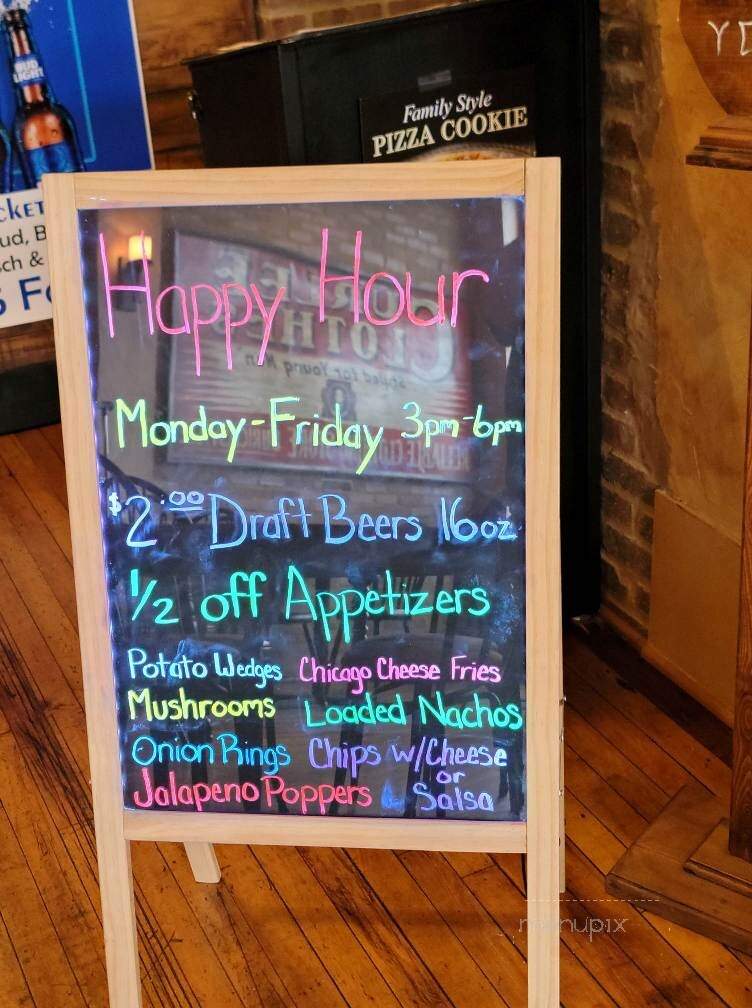 BUD
LIGHT
Family Style
PIZZA COOKIE
Happy Hour
Monday-Friday 3pm-6pm
$2.00 Draft Beers 16oz
1/2 off Appetizers
Potato Wedges Chicago Cheese Fries
Mushrooms Loaded Nachos
Onion Rings Chips w/Cheese
or
Jalapeno Poppers Salsa
menupix